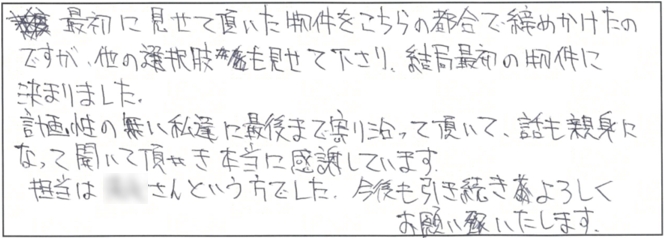 最初に見せて頂いた物件をこちらの都合で締めかけたの
ですが、他の選択肢も見せて下さり、結局最初の物件に
決まりました。
計画性の無い私達に最後まで寄り沿って頂いて、話も親身に
なって聞いて頂き本当に感謝しています。
担当は さんという方でした。今後も引き続きよろしく
お願いいたします。